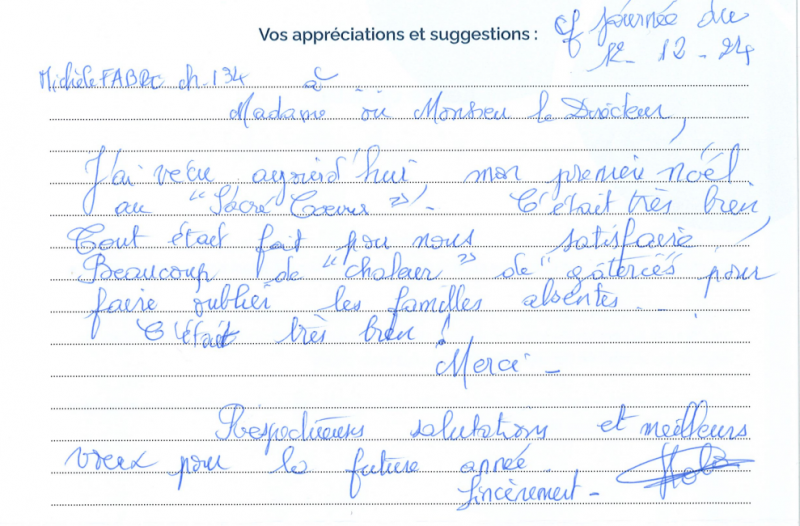 Vos appréciations et suggestions :
cf journée du
12-12-24
Michèle FABRE ch.134 à
Madame ou Monsieur le Directeur,
J'ai vécu aujourd'hui mon premier noël
au "Sacré Coeur". C'était très bien,
Tout était fait pour nous satisfaire,
Beaucoup de "chaleur" de "gâteries" pour
faire oublier les familles absentes.
C'était très bien !
Merci -
Respectueuses salutations et meilleurs
voeux pour la future année.
Sincèrement -